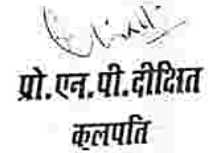 प्रो.एन.पी.दीक्षित
कुलपति